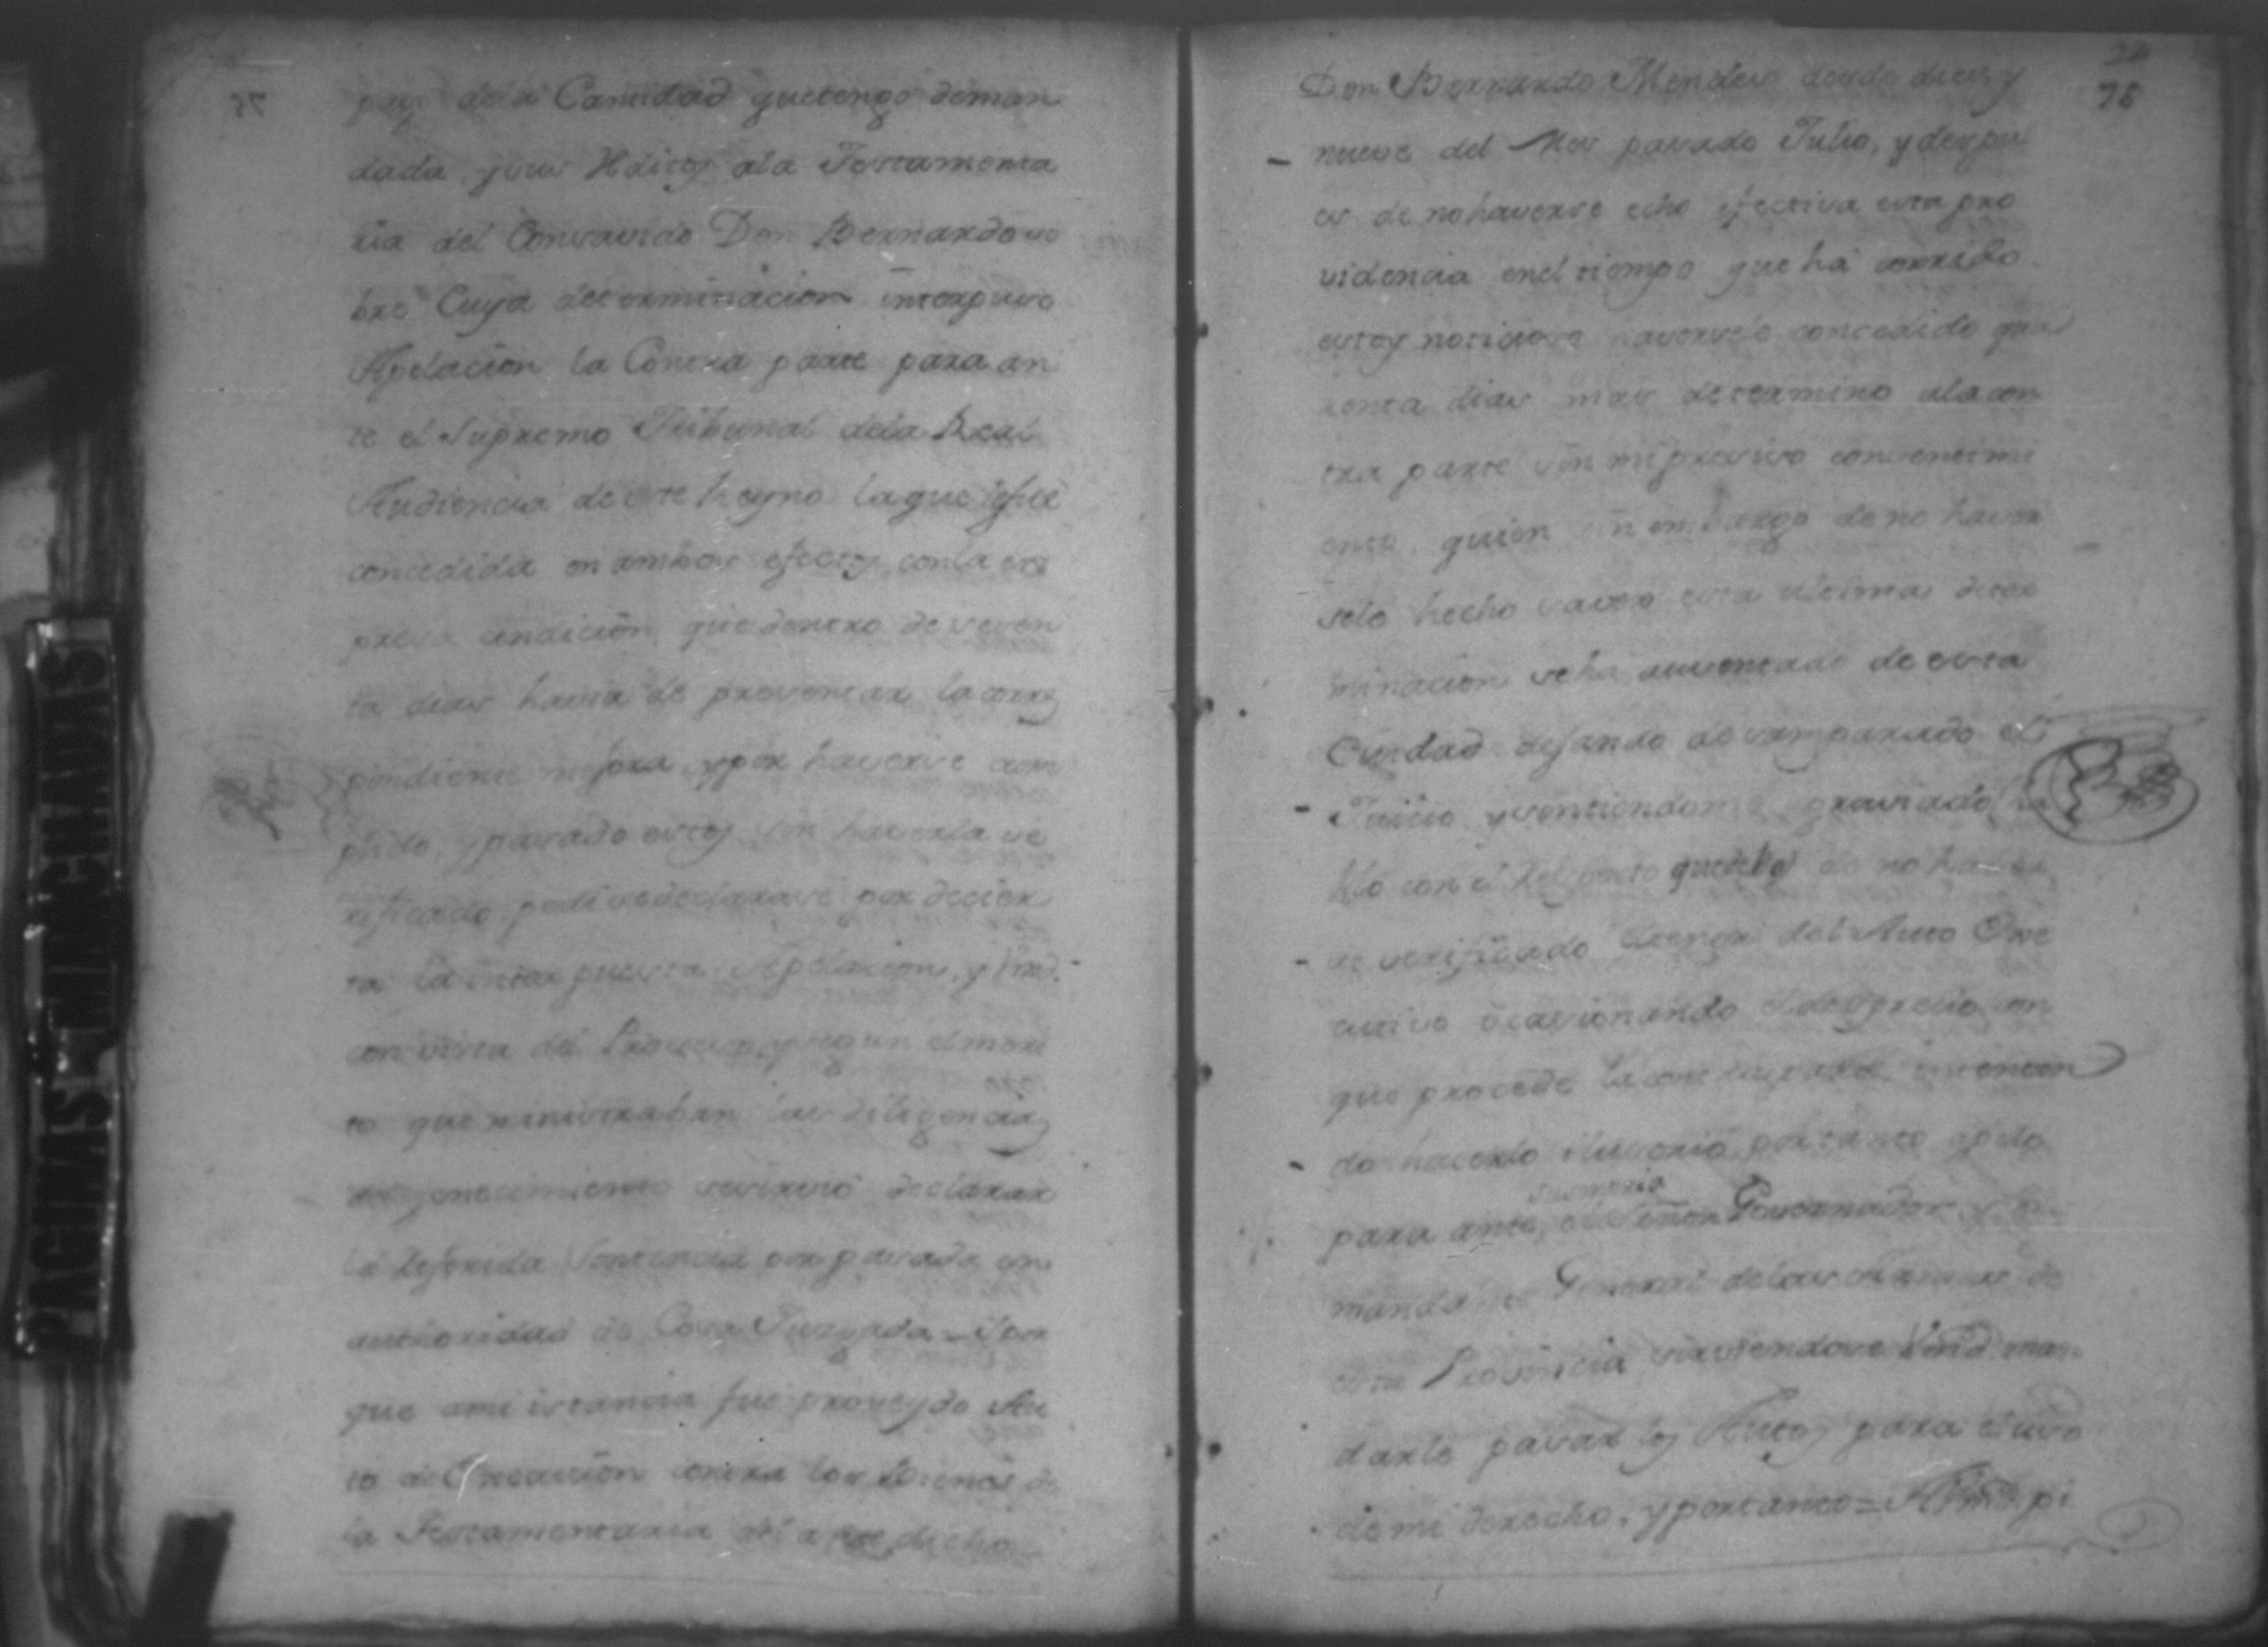 pago dela Cantidad quetengo deman
dada, y sus Rditos ala Testamenta
ria del Consavido Don Bernardo so
bre Cuya determinacion interpuso
Apelacion la Contra parte para an
te el Supremo Tribunal dela Real
Audiencia de este Reyno la que le fue
concedida en ambos efectos con la ex
presa condicion que dentro de seten
ta dias havia de presentar la corres
pondiente mejora, y por haverse cum
plido, y pasado estos sin haverla ve
rificado pedi se declarase por decier
ta la interpuesta Apelacion, y Vmd.
con vista del Proceso, y segun el meri
to que ministraban las diligencias
conocimiento se sirvió declarar
la Referida Sentencia por pasada en
authoridad de Cosa Juzgada = Y por
que ami istancia fue proveydo Au
to de Execucion contra los Bienes de
la Testamentaria del antedicho
22
75
Don Bernardo Mendes desde diez y
nueve del Mes pasado Julio, y despu
es de no haverse echo efectiva esta pro
videncia en el tiempo que há corrido
estoy noticioso haversele concedido qua
renta dias mas de termino ala con
tra parte sin mi preciso consentimi
ento, quien sin embargo de no haver
sele hecho saver esta ultima deter
minacion se ha ausentado de esta
Ciudad dejando desamparado el
Juicio y sintiendome graviado, ha
blo con el Respecto que debo de no haver
se verificado el tenor del Auto Exe
cutivo ocasionando el desprecio con
que procede la contraparte intentan
do hacerlo ilusorio, por tanto apelo
para ante el Señor Governador y Co
mando General delas Armas de
esta Provincia sirviendose Vmd. man
darle pasar los Autos para el uso
de mi derecho, y por tanto = A Vmd. pi